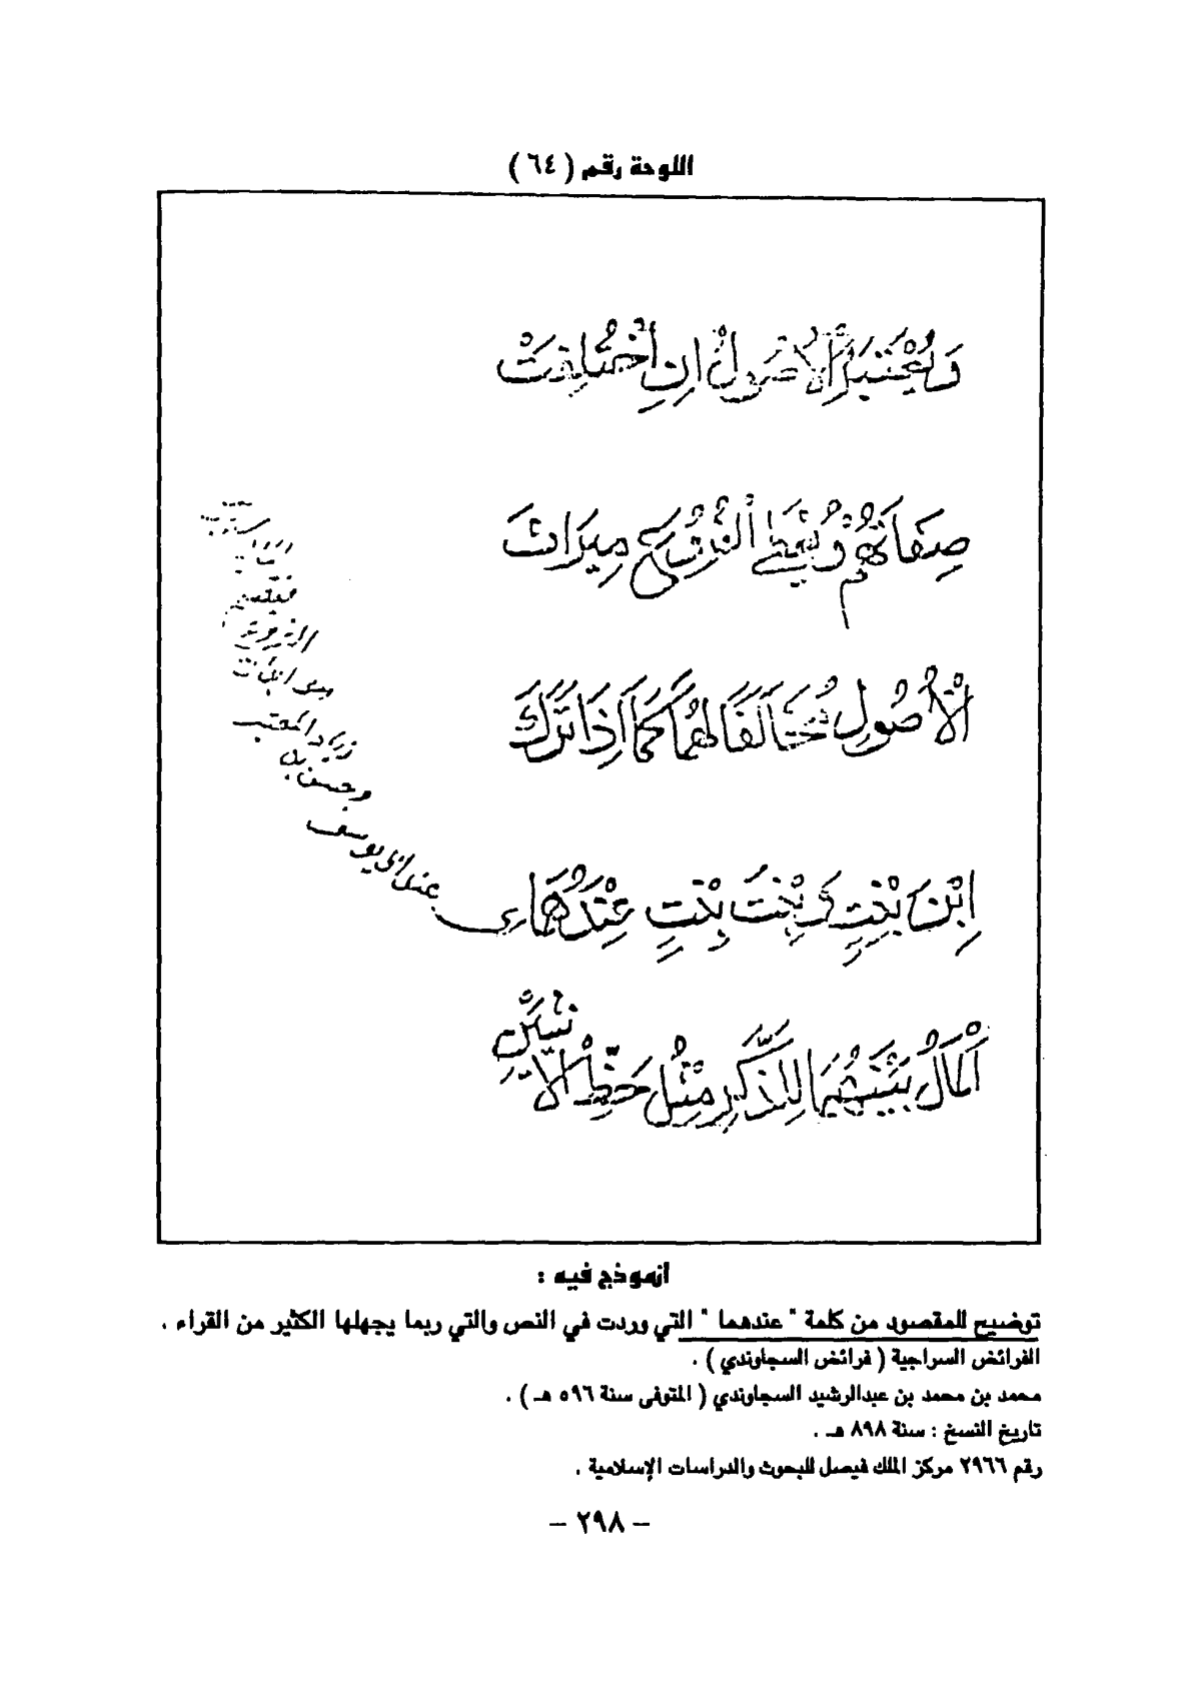 اللوحة رقم ( ٦٤ )
وَيُعْتَبَرُ الْأُصُولُ اِنِ اخْتَلَفَتْ
صِفَاتُهُمْ وَيُعْطَى الْفُرُوعُ مِيرَاثَ
الْأُصُولِ مُخَالَفًا لَهُمَا كَمَا اِذَا تَرَكَ
اِبْنَ بِنْتٍ وَبِنْتَ بِنْتٍ عِنْدَهُمَا
اَلْمَالُ بَيْنَهُمَا لِلذَّكَرِ مِثْلُ حَظِّ الْأُنْثَيَيْنِ
عند ابى يوسف
وحسن بن
زياد المعتبر
انموذج فيه :
توضيح للمقصود من كلمة " عندهما " التي وردت في النص والتي ربما يجهلها الكثير من القراء .
الفرائض السراجية ( فرائض السجاوندي ) .
محمد بن محمد بن عبدالرشيد السجاوندي ( المتوفى سنة ٥٩٦ هـ ) .
تاريخ النسخ : سنة ٨٩٨ هـ .
رقم ٢٩٦٦ مركز الملك فيصل للبحوث والدراسات الإسلامية .
– ٢٩٨ –